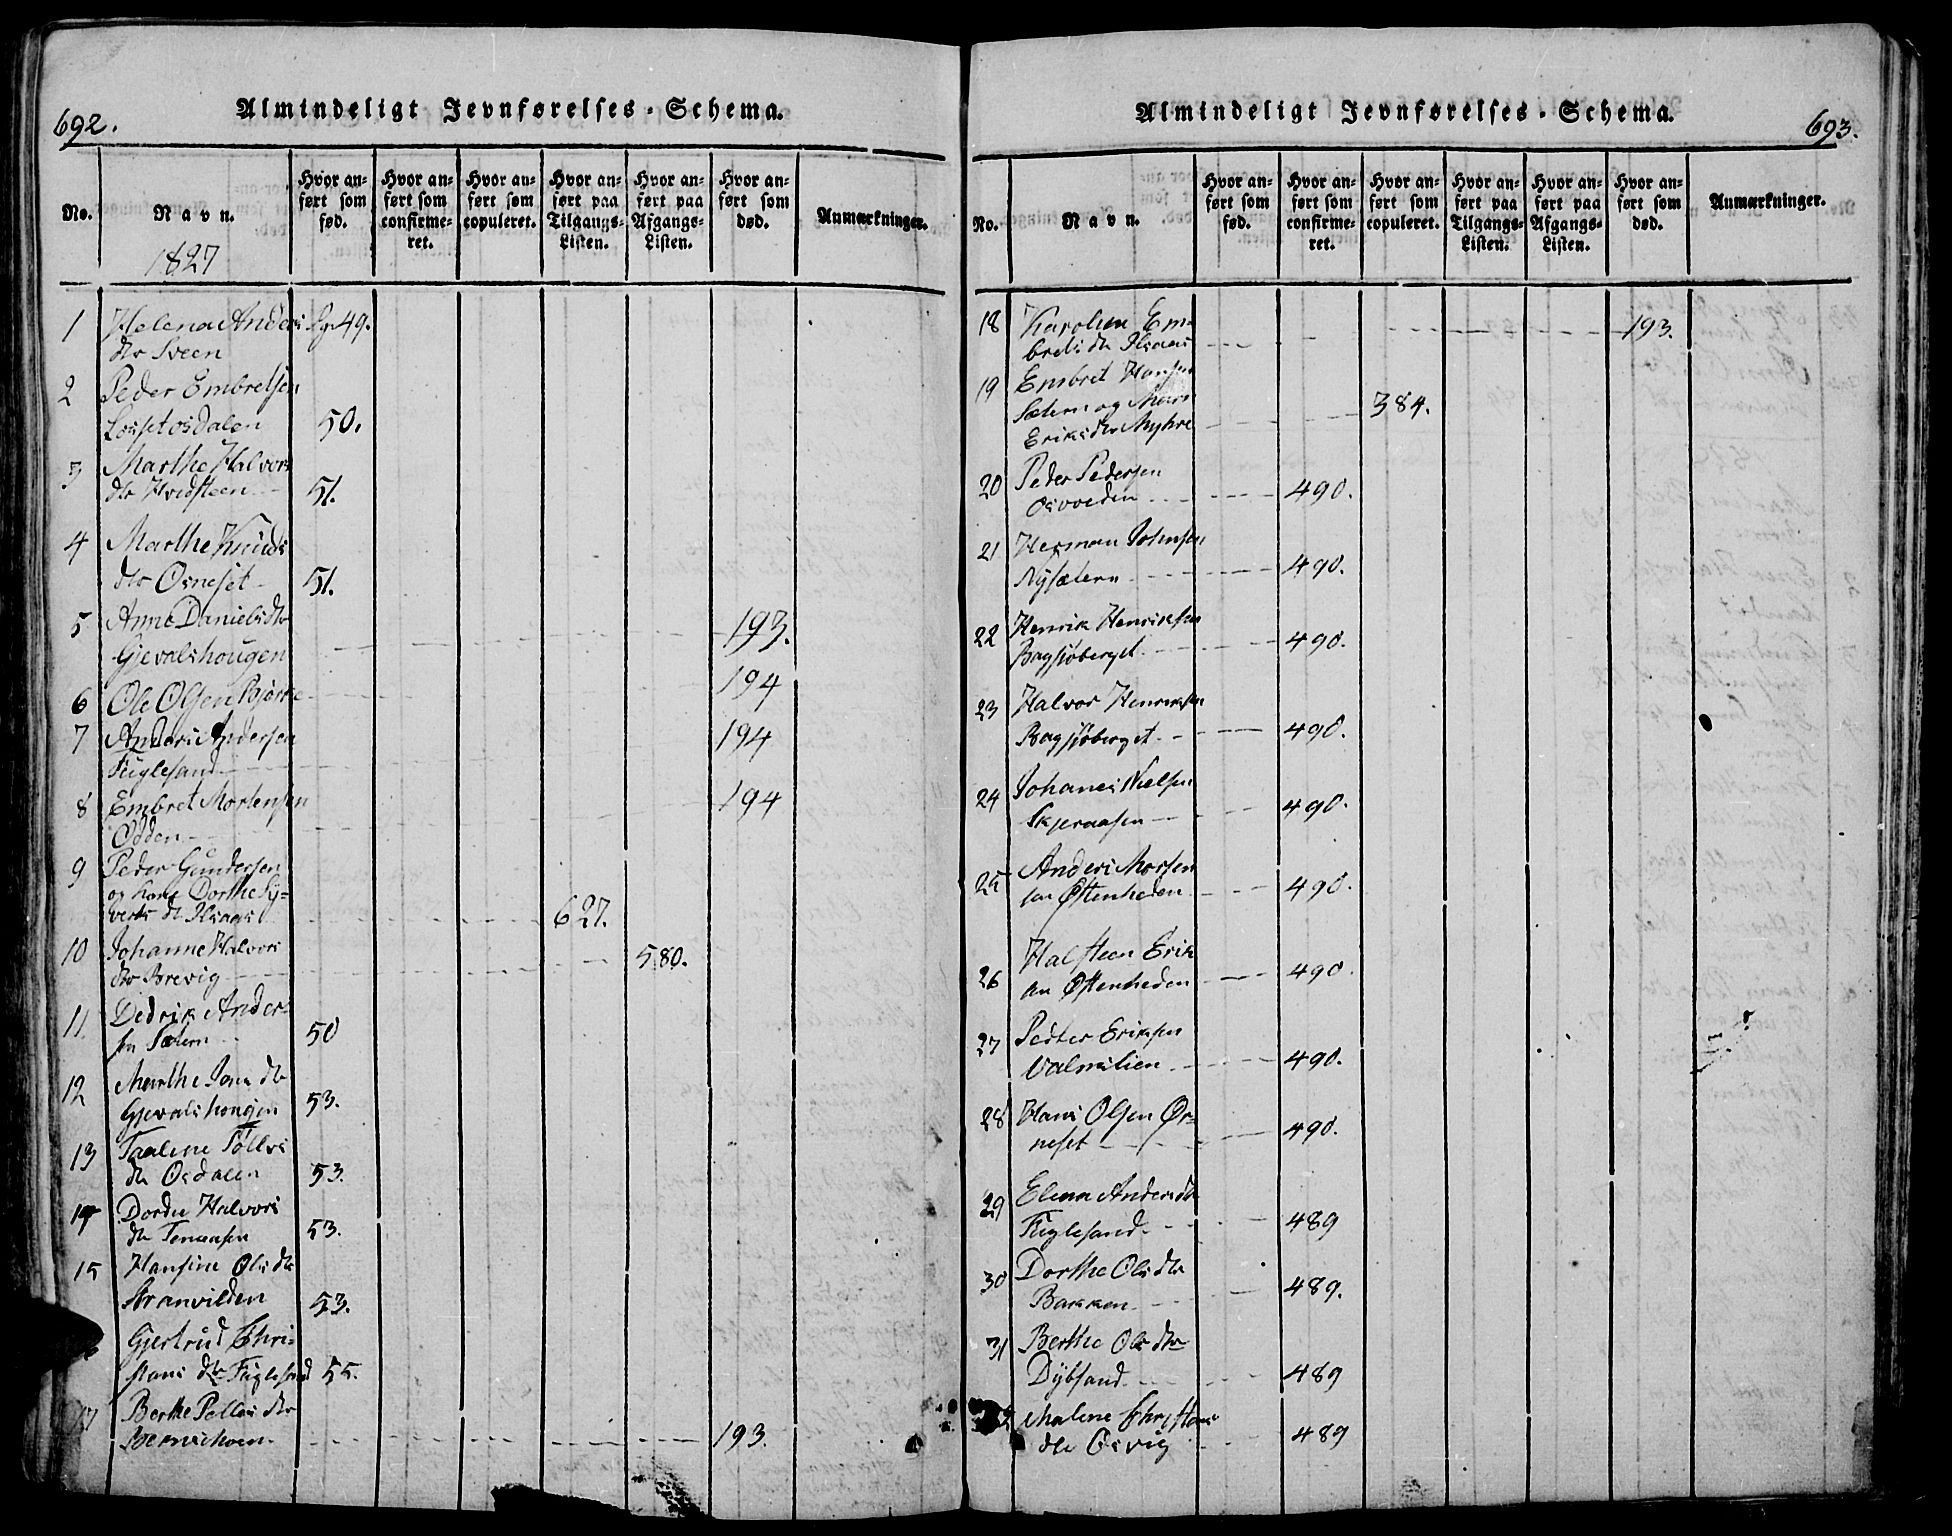 692.
Almindeligt Jevnførelses-Schema.
No.
Navn.
Hvor an-
ført som
fød.
Hvor an-
ført som
confirme-
ret.
Hvor an-
ført som
copuleret.
Hvor an-
ført paa
Tilgangs-
Listen.
Hvor an-
ført paa
Afgangs-
Listen.
Hvor an-
ført som
død.
Anmærkninger.
1827
1 Helena Anders 49.
dtr Sveen
2 Peder Embretsen
Lossetosdalen 50.
3 Marthe Halvors
dtr Hvidsteen 51.
4 Marthe Knuds
dtr Osneset 51.
5 Anne Danielsdtr 193.
Gjevalshougen
6 Ole Olsen Bjørke 194
7 Anders Andersen 194
Fuglesand
8 Embret Mortensen 194
Odden
9 Peder Gundersen
og Kone Dorthe Sy-
verts dtr Ilsaas 627.
10 Johanne Halvors 580.
dtr Brevig
11 Dedrik Ander-
sen Sætern 50
12 Marthe Jons dtr
Gjevalshougen 53.
13 Taalene Tollvs
dtr Osdalen 53.
14 Dordie Halvors
dtr 53.
15 Hansine Ols dtr
Stranvilden 53.
Gjertrud Chri-
stians dtr Fuglesand 55.
17 Berthe Pelles dtr
193.
693.
Almindeligt Jevnførelses-Schema.
No.
Navn.
Hvor an-
ført som
fød.
Hvor an-
ført som
confirme-
ret.
Hvor an-
ført som
copuleret.
Hvor an-
ført paa
Tilgangs-
Listen.
Hvor an-
ført paa
Afgangs-
Listen.
Hvor an-
ført som
død.
Anmærkninger.
18 Karolien Em- 193.
brets dtr Ilsaas
19 Embret Hansen
Sætern og Mari 384.
Eriksdtr Myhre
20 Peder Pedersen
Osvoeden 490.
21 Herman Johnsen
Nysætern 490.
22 Henrik Henriksen
Bagsjøberget 490.
23 Halvor Henriksen
Bagsjøberget 490.
24 Johanes Nielsen
Skjeraasen 490.
25 Anders Morten
sen Østenheden 490.
26 Halsteen Erik
sen Østenheden 490.
27 Peder Eriksen
Valmslien 490.
28 Hans Olsen Ør-
neset 490.
29 Elena Anders dtr
Fuglesand 489
30 Dorthe Ols dtr
Bakken 489.
31 Berthe Ols dtr
Dybsand 489
Malene Christians
dtr Osvig 489